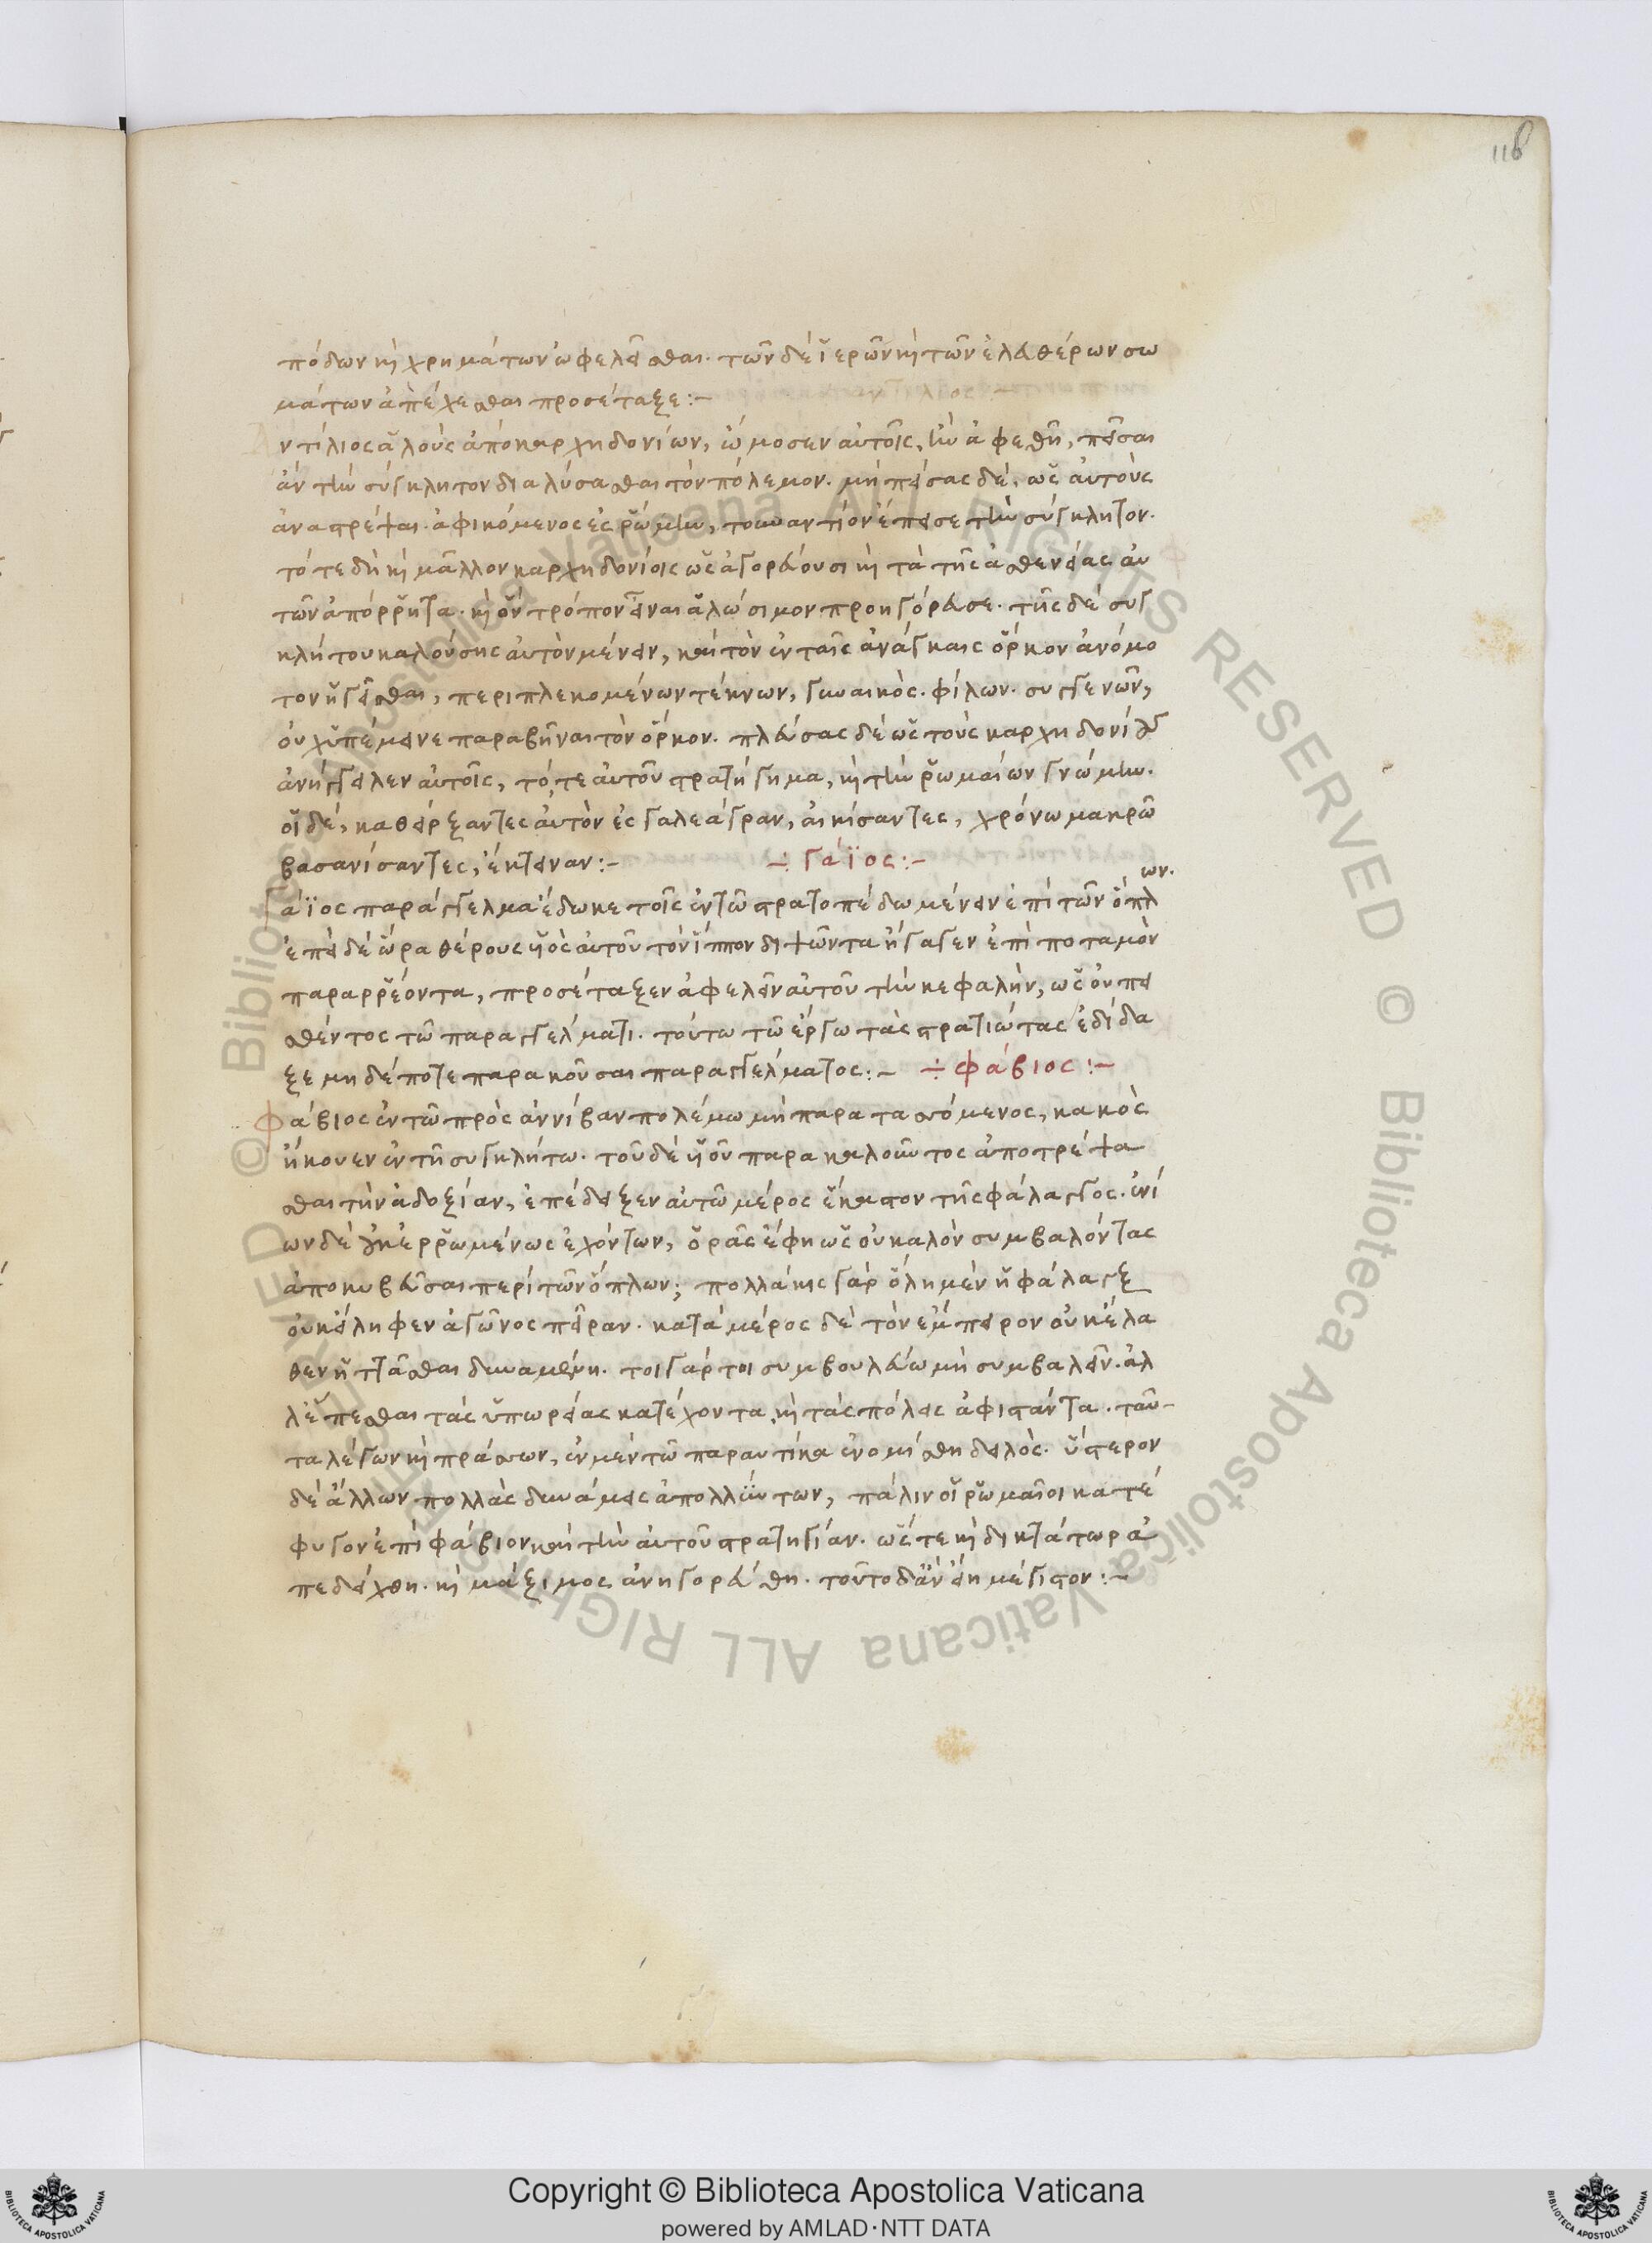 116
πόδων καὶ χρημάτων ὠφελεῖσθαι· τῶν δὲ ἱερῶν καὶ τῶν ἐλευθέρων σω
μάτων ἀπέχεσθαι προσέταξε:-
Αντίλιος ἁλοὺς ἀπὸ καρχηδονίων, ὤμοσεν αὐτοῖς, ἢν ἀφεθῆ, πεῖσαι
ἀν τὴν σύγκλητον διαλύσασθαι τὸν πόλεμον. μὴ πείσας δὲ, ὡς αὐτοὺς
ἀναστρέψαι· ἀφικόμενος ἐς ῥώμην, τουναντίον ἔπεισε τὴν σύγκλητον·
τότε δὴ καὶ μᾶλλον καρχηδονίοις ὡς ἀγορεύουσι καὶ τὰ τῆς ἀσθενείας αὐ
τῶν ἀπόρρητα· καὶ ὃν τρόπον εἶναι ἁλώσιμον προηγόρευσε· τῆς δὲ συγ
κλήτου καλούσης αὐτὸν μένειν, καὶ τὸν ἐν ταῖς ἀνάγκαις ὅρκον ἀνόμο
τον ἡγεῖσθαι, περιπλεκομένων τέκνων, γυναικὸς· φίλων· συγγενῶν,
οὐχ ὑπέμεινε παραβῆναι τὸν ὅρκον. πλεύσας δὲ ὡς τοὺς καρχηδονίους
ἀνήγγειλεν αὐτοῖς, τό, τε αὐτοῦ στρατήγημα, καὶ τὴν ῥωμαίων γνώμην.
οἱ δὲ, καθείρξαντες αὐτὸν ἐς γαλεάγραν, αἰκίσαντες, χρόνω μακρῶ
βασανίσαντες, ἔκτειναν:- ÷ γάϊος:-
Γάϊος παράγγελμα ἔδωκε τοῖς ἐν τῶ στρατοπέδω μένειν ἐπὶ τῶν ὅπλων·
ἐπεὶ δὲ ὥρα θέρους υἱὸς αὐτοῦ τὸν ἵππον διψῶντα ἤγαγεν ἐπὶ ποταμὸν
παραρρέοντα, προσέταξεν ἀφελεῖν αὐτοῦ τὴν κεφαλὴν, ὡς οὐ πει
σθέντος τῶ παραγγέλματι. τούτω τῶ ἔργω τὰς στρατιώτας ἐδίδα
ξε μηδέποτε παρακοῦσαι παραγγέλματος:- ÷ φάβιος:-
Φάβιος ἐν τῶ πρὸς ἀννίβαν πολέμω μὴ παραταττόμενος, κακὸς
ἤκουεν ἐν τῆ συγκλήτω· τοῦ δὲ υἱοῦ παρακαλοῦντος ἀποτρέψα
σθαι τὴν ἀδοξίαν, ἐπέδειξεν αὐτῶ μέρος ἕκαστον τῆς φάλαγγος· ἐνί
ων δὲ οὐκ ἐρρωμένως ἐχόντων, ὁρᾶς ἔφη ὡς οὐ καλὸν συμβαλόντας
ἀποκυβεῦσαι περὶ τῶν ὅπλων; πολλάκις γὰρ ὅλη μὲν ἡ φάλαγξ
οὐκ εἴληφεν ἀγῶνος πεῖραν· κατὰ μέρος δὲ τὸν ἔμπειρον οὐκ ἔλα
θεν ἡττᾶσθαι δυναμένη. τοιγάρτοι συμβουλεύω μὴ συμβαλεῖν· ἀλ
λ' ἕπεσθαι τὰς ὑπωρείας κατέχοντα καὶ τὰς πόλεις ἀφιστάντα. ταῦ-
τα λέγων καὶ πράττων, ἐν μὲν τῶ παραυτίκα ἐνομίσθη δειλὸς· ὕστερον
δὲ ἄλλων πολλὰς δυνάμεις ἀπολλύντων, πάλιν οἱ ῥωμαῖοι κατέ
φυγον ἐπὶ φάβιον καὶ τὴν αὐτοῦ στρατηγίαν. ὥστε καὶ δικτάτωρ ἀ
πεδείχθη· καὶ μάξιμος ἀνηγορεύθη· τοῦτο δ' ἂν εἴη μέγιστον:-
© Biblioteca Apostolica Vaticana ALL RIGHTS RESERVED © Biblioteca Apostolica Vaticana ALL RIGHTS RESERVED
BIBLIOTECA APOSTOLICA VATICANA
Copyright © Biblioteca Apostolica Vaticana
powered by AMLAD·NTT DATA
BIBLIOTECA APOSTOLICA VATICANA